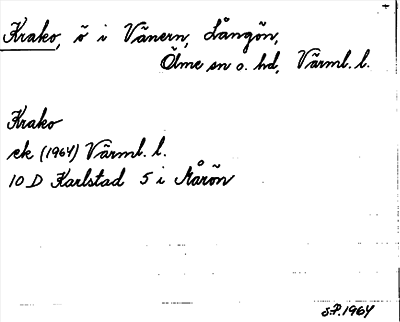 Krako, ö i Vänern, Långön,
Ölme sn o. hd, Värml. l.
Krako
ek (1964) Värml. l.
10 D Karlstad 5 i Mårön
S.P. 1964